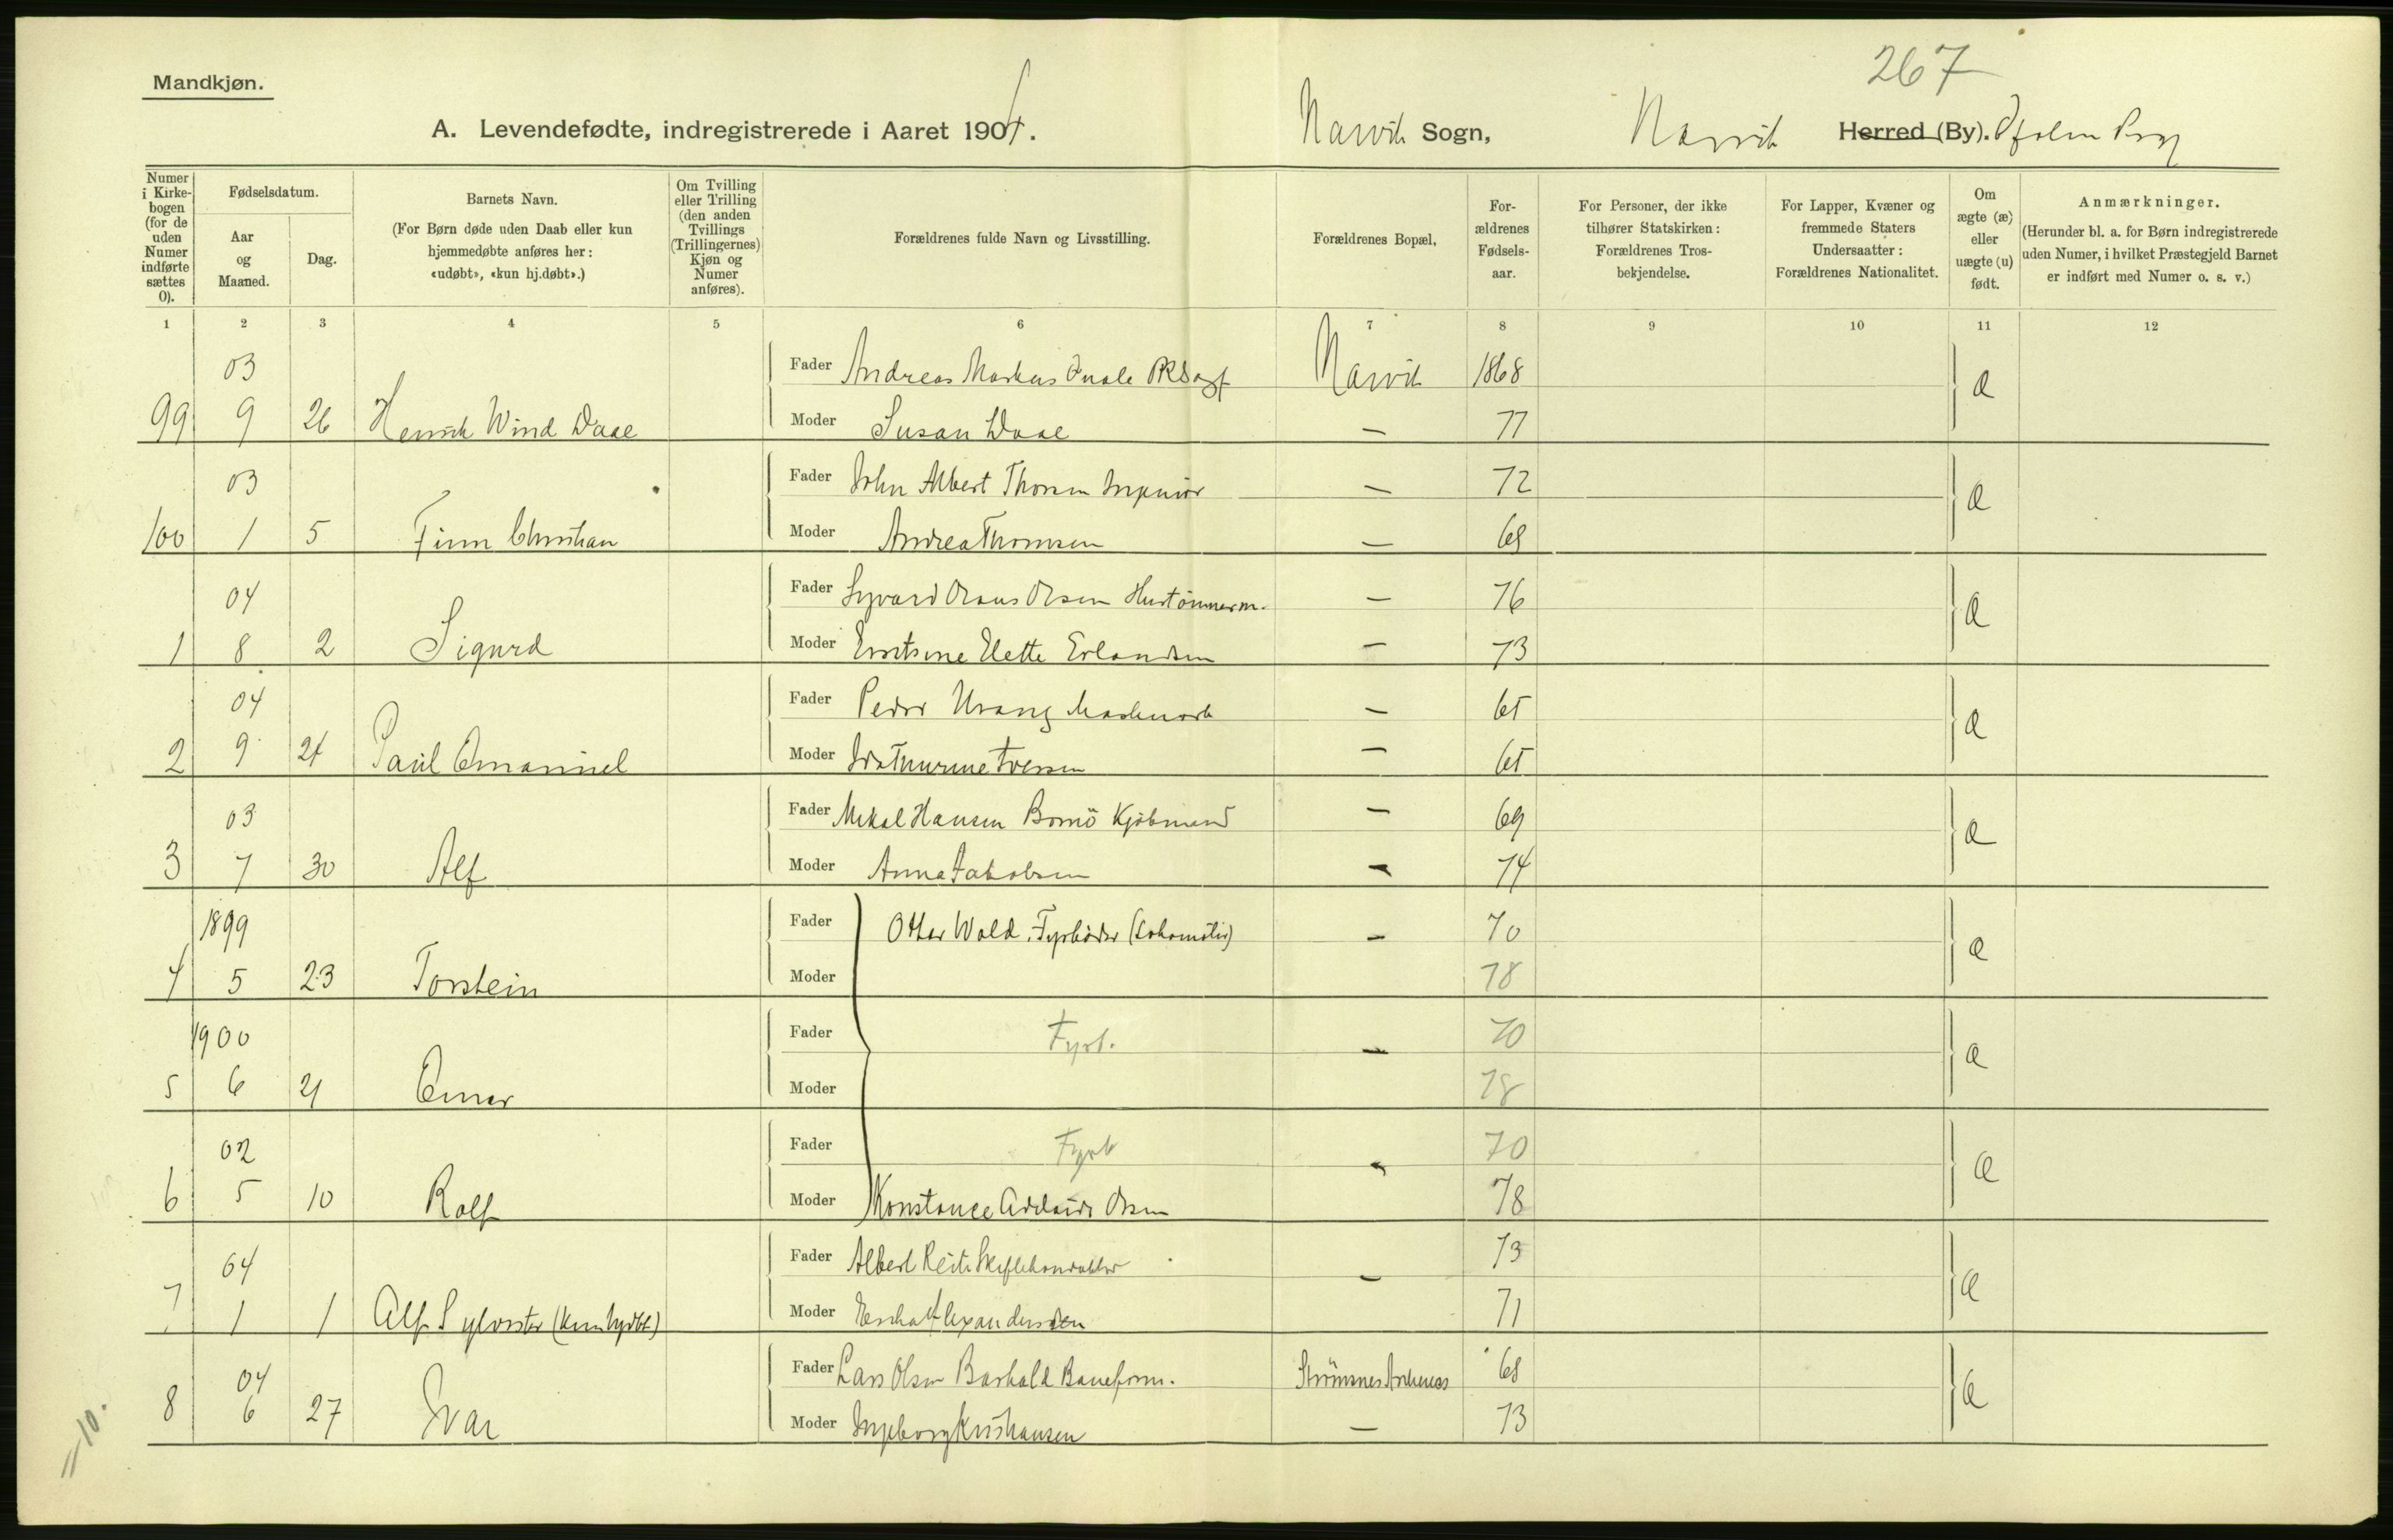 267
Mandkjøn.
A. Levendefødte, indregistrerede i Aaret 1904.
Narvik Sogn, Narvik Herred (By).
Numer i Kirkebogen (for de uden Numer indførte sættes 0).
Fødselsdatum.
Aar og Maaned.
Dag.
Barnets Navn.
(For Børn døde uden Daab eller kun hjemmedøbte anføres her: «udøbt», «kun hj.døbt».)
Om Tvilling eller Trilling (den anden Tvillings (Trillingernes) Kjøn og Numer anføres).
Forældrenes fulde Navn og Livsstilling.
Forældrenes Bopæl,
Forældrenes Fødselsaar.
For Personer, der ikke tilhører Statskirken: Forældrenes Trosbekjendelse.
For Lapper, Kvæner og fremmede Staters Undersaatter: Forældrenes Nationalitet.
Om ægte (æ) eller uægte (u) født.
Anmærkninger.
(Herunder bl. a. for Børn indregistrerede uden Numer, i hvilket Præstegjeld Barnet er indført med Numer o. s. v.)
1 2 3 4 5 6 7 8 9 10 11 12
03 Fader Andreas Markus Narvik 1868 æ
99 9 26 Henrik Wind Daae Moder Susan Daae — 77
03 Fader John Albert Ingeniör — 72 æ
100 1 5 Finn Christian Moder Andrea Thomsen — 68
04 Fader Olsen Hustömmerm. — 76 æ
1 8 2 Sigurd Moder Elette Erlandsen — 73
04 Fader Peder — 65 æ
2 9 24 Paul Emanuel Moder — 65
03 Fader Mikal Hansen Kjöbmand — 69 æ
3 7 30 Alf Moder Anna Jakobsen — 74
1899 Fader Otter Wold, Fyrböder (Lokomotiv) — 70 æ
4 5 23 Torstein Moder 78
1900 Fader Fyrb. — 70 æ
5 6 21 Einar Moder 78
02 Fader Fyrb — 70 æ
6 5 10 Rolf Moder Konstance Olsen 78
04 Fader Albert — 73 æ
7 1 1 Alf Sylvester (kun hjdbt) Moder Alexandersen 71
04 Fader Lars Olsen Baneform. 68 æ
8 6 27 Ivar Moder Ingeborg Kristiansen — 73
10.